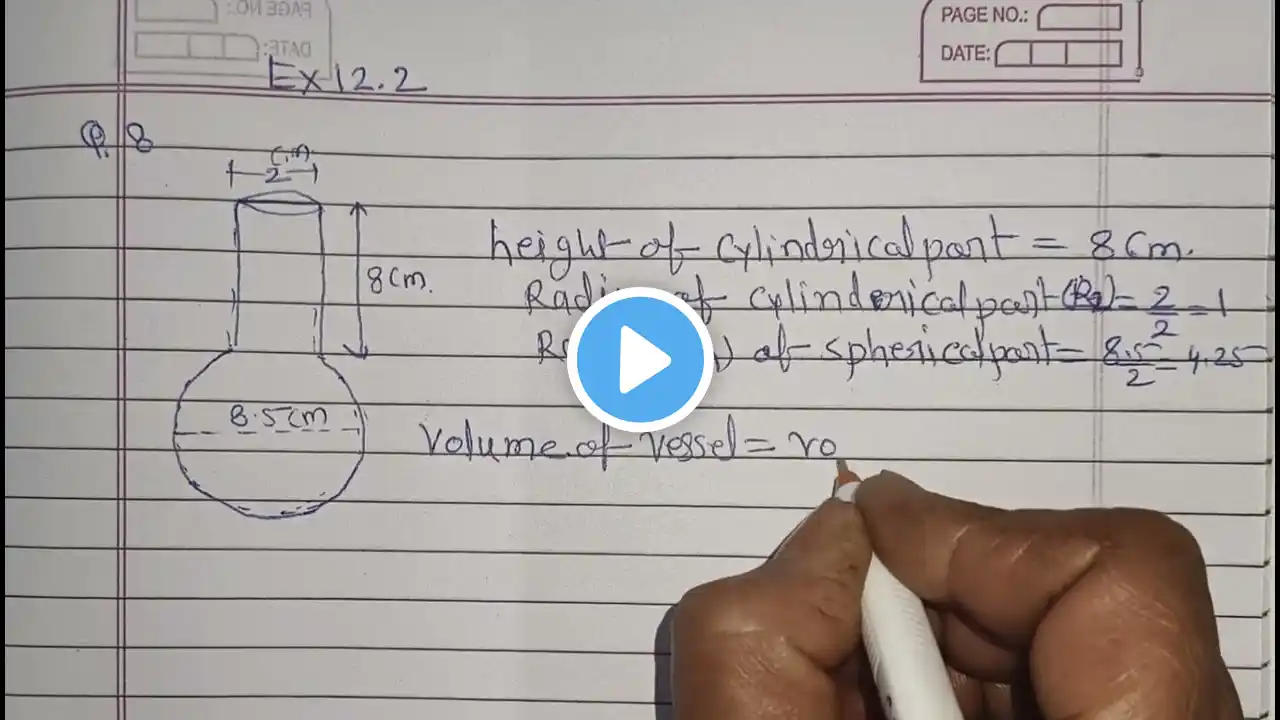 PAGE NO.:
DATE:
PAGE NO.:
DATE:
Ex 12.2
Q. 8
cm.
2
8 cm.
8.5 cm
height of cylindrical part = 8 cm.
of cylinderical part = 2/2 = 1
of spherical part = 8.5/2 = 4.25
Volume of vessel = vo